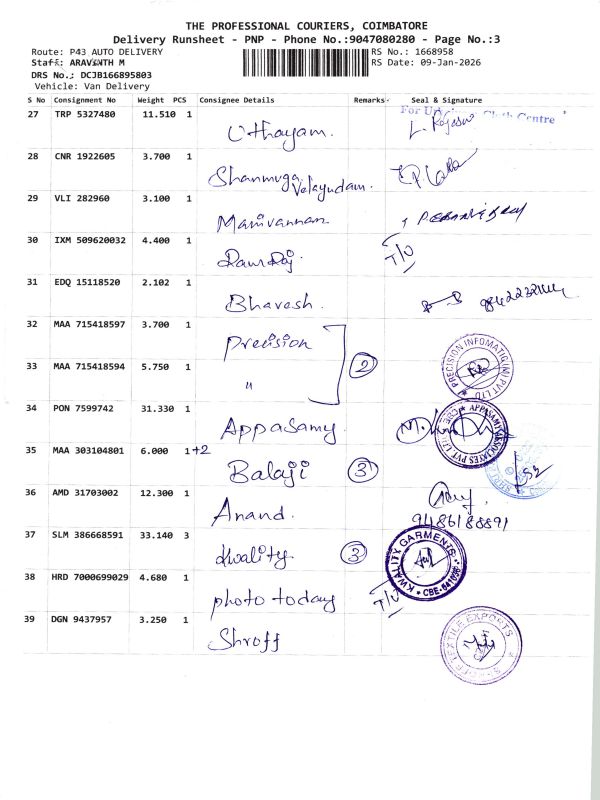 THE PROFESSIONAL COURIERS, COIMBATORE
Delivery Runsheet - PNP - Phone No.:9047080280 - Page No.:3
Route: P43 AUTO DELIVERY RS No.: 1668958
Staff: ARAVINTH M RS Date: 09-Jan-2026
DRS No.: DCJB166895803
Vehicle: Van Delivery
S No Consignment No Weight PCS Consignee Details Remarks Seal & Signature
27 TRP 5327480 11.510 1 Uthayam. For Cloth Centre
28 CNR 1922605 3.700 1 Shanmuga Velayudam.
29 VLI 282960 3.100 1 Manivannan
30 IXM 509620032 4.400 1 T/U
31 EDQ 15118520 2.102 1 Bhavesh.
32 MAA 715418597 3.700 1 Precision
33 MAA 715418594 5.750 1 " 2 PRECISION INFOMATIC (M) PVT LTD
34 PON 7599742 31.330 1 Appasamy. APPASAMY ASSOCIATES PVT. LTD. CBE
35 MAA 303104801 6.000 1+2 Balaji 3
36 AMD 31703002 12.300 1 Anand. 9486188891
37 SLM 386668591 33.140 3 Kwality 3 KWALITY GARMENTS CBE-641
38 HRD 7000699029 4.680 1 photo today T/U
39 DGN 9437957 3.250 1 Shroff TEXTILE EXPORTS